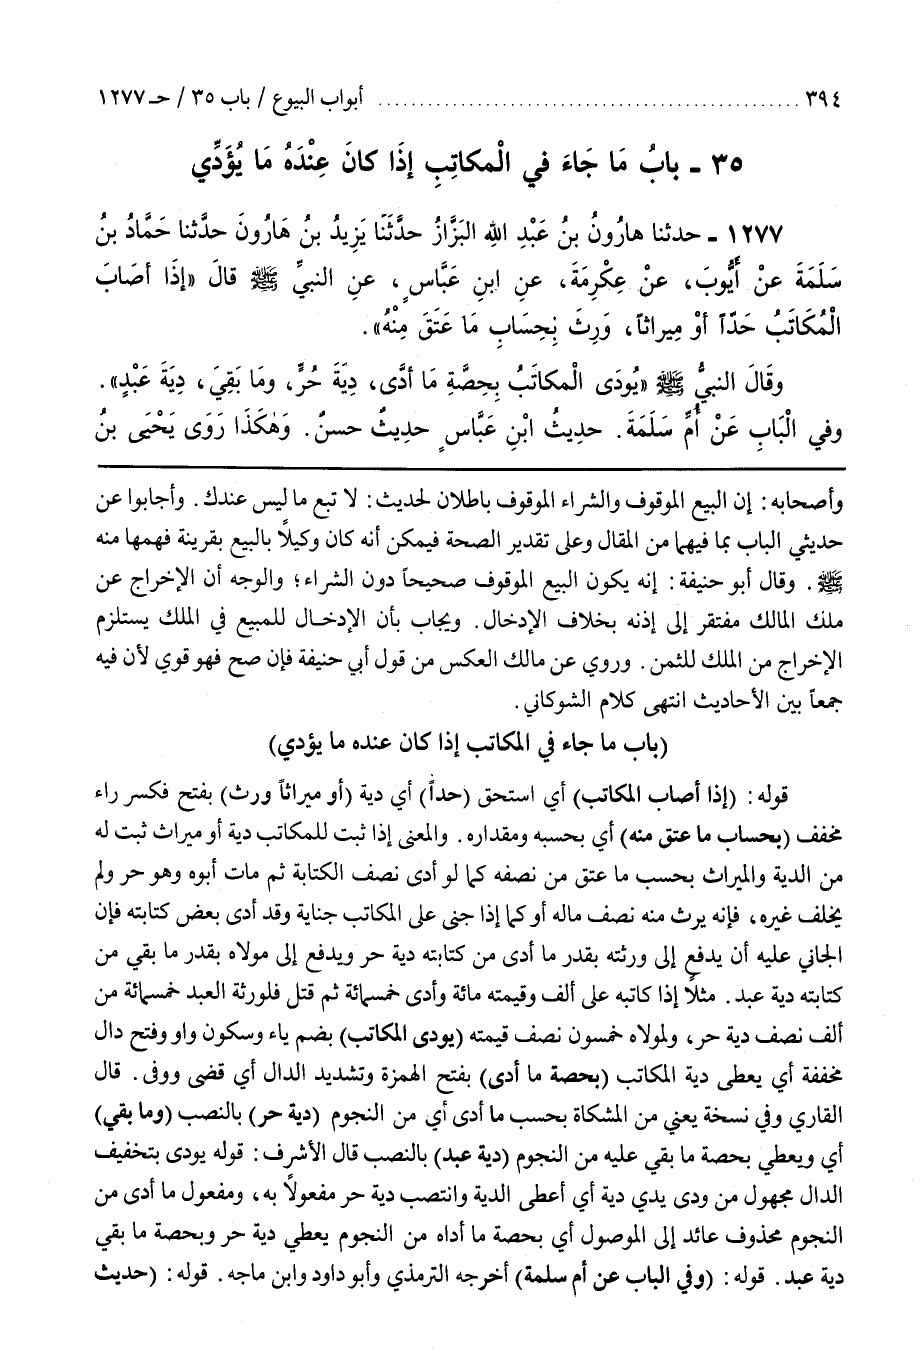 ٣٩٤ ........................................ أبواب البيوع / باب ٣٥ / حـ ١٢٧٧
٣٥ - بابُ مَا جَاءَ في الْمكاتِبِ إذَا كانَ عِنْدَهُ مَا يُؤَدِّي
١٢٧٧ - حدثنا هارُونُ بنُ عَبْدِ اللهِ البَزَّازُ حدَّثَنَا يَزِيدُ بنُ هَارُونَ حدَّثنا حَمَّادُ بنُ
سَلَمَةَ عنْ أَيُّوبَ، عنْ عِكْرِمَةَ، عنِ ابنِ عَبَّاسٍ، عنِ النبيِّ ﷺ قالَ «إذَا أصَابَ
الْمُكَاتَبُ حَدّاً أوْ مِيراثاً، وَرِثَ بِحِسَابِ مَا عَتَقَ مِنْهُ».
وقَالَ النبيُّ ﷺ «يُودَى الْمكاتَبُ بِحِصَّةِ مَا أدَّى، دِيَةَ حُرٍّ، ومَا بَقِيَ، دِيَةَ عَبْدٍ».
وفي الْبَابِ عَنْ أُمِّ سَلَمَةَ. حديثُ ابْنِ عَبَّاسٍ حديثٌ حسنٌ. وَهٰكَذَا رَوَى يَحْيَى بنُ
وأصحابه: إن البيع الموقوف والشراء الموقوف باطلان لحديث: لا تبع ما ليس عندك. وأجابوا عن
حديثي الباب بما فيهما من المقال وعلى تقدير الصحة فيمكن أنه كان وكيلاً بالبيع بقرينة فهمها منه
ﷺ. وقال أبو حنيفة: إنه يكون البيع الموقوف صحيحاً دون الشراء؛ والوجه أن الإخراج عن
ملك المالك مفتقر إلى إذنه بخلاف الإدخال. ويجاب بأن الإدخال للمبيع في الملك يستلزم
الإخراج من الملك للثمن. وروي عن مالك العكس من قول أبي حنيفة فإن صح فهو قوي لأن فيه
جمعاً بين الأحاديث انتهى كلام الشوكاني.
(باب ما جاء في المكاتب إذا كان عنده ما يؤدي)
قوله: (إذا أصاب المكاتب) أي استحق (حداً) أي دية (أو ميراثاً ورث) بفتح فكسر راء
مخفف (بحساب ما عتق منه) أي بحسبه ومقداره. والمعنى إذا ثبت للمكاتب دية أو ميراث ثبت له
من الدية والميراث بحسب ما عتق من نصفه كما لو أدى نصف الكتابة ثم مات أبوه وهو حر ولم
يخلف غيره، فإنه يرث منه نصف ماله أو كما إذا جنى على المكاتب جناية وقد أدى بعض كتابته فإن
الجاني عليه أن يدفع إلى ورثته بقدر ما أدى من كتابته دية حر ويدفع إلى مولاه بقدر ما بقي من
كتابته دية عبد. مثلاً إذا كاتبه على ألف وقيمته مائة وأدى خمسمائة ثم قتل فلورثة العبد خمسمائة من
ألف نصف دية حر، ولمولاه خمسون نصف قيمته (يودى المكاتب) بضم ياء وسكون واو وفتح دال
مخففة أي يعطى دية المكاتب (بحصة ما أدى) بفتح الهمزة وتشديد الدال أي قضى ووفى. قال
القاري وفي نسخة يعني من المشكاة بحسب ما أدى أي من النجوم (دية حر) بالنصب (وما بقي)
أي ويعطي بحصة ما بقي عليه من النجوم (دية عبد) بالنصب قال الأشرف: قوله يودى بتخفيف
الدال مجهول من ودى يدي دية أي أعطى الدية وانتصب دية حر مفعولاً به، ومفعول ما أدى من
النجوم محذوف عائد إلى الموصول أي بحصة ما أداه من النجوم يعطي دية حر وبحصة ما بقي
دية عبد. قوله: (وفي الباب عن أم سلمة) أخرجه الترمذي وأبو داود وابن ماجه. قوله: (حديث